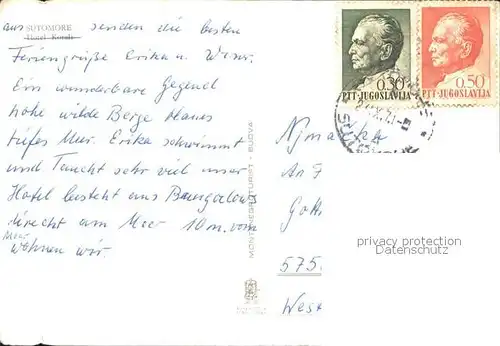 SUTOMORE
Hotel Korali
aus senden die besten
Feriengrüße Erika u.
Ein wunderbare Gegend
hohe wilde Berge blaues
tiefes Meer. Erika schwimmt
und Taucht sehr viel unser
Hotel besteht aus Bungalows
direcht am Meer 10 m. vom
Meer wohnen wir.
MONTENEGROTURIST - BUDVA
0.30
PTT-JUGOSLAVIJA
0.50
PTT-JUGOSLAVIJA
An F
575
Wes
privacy protection
Datenschutz